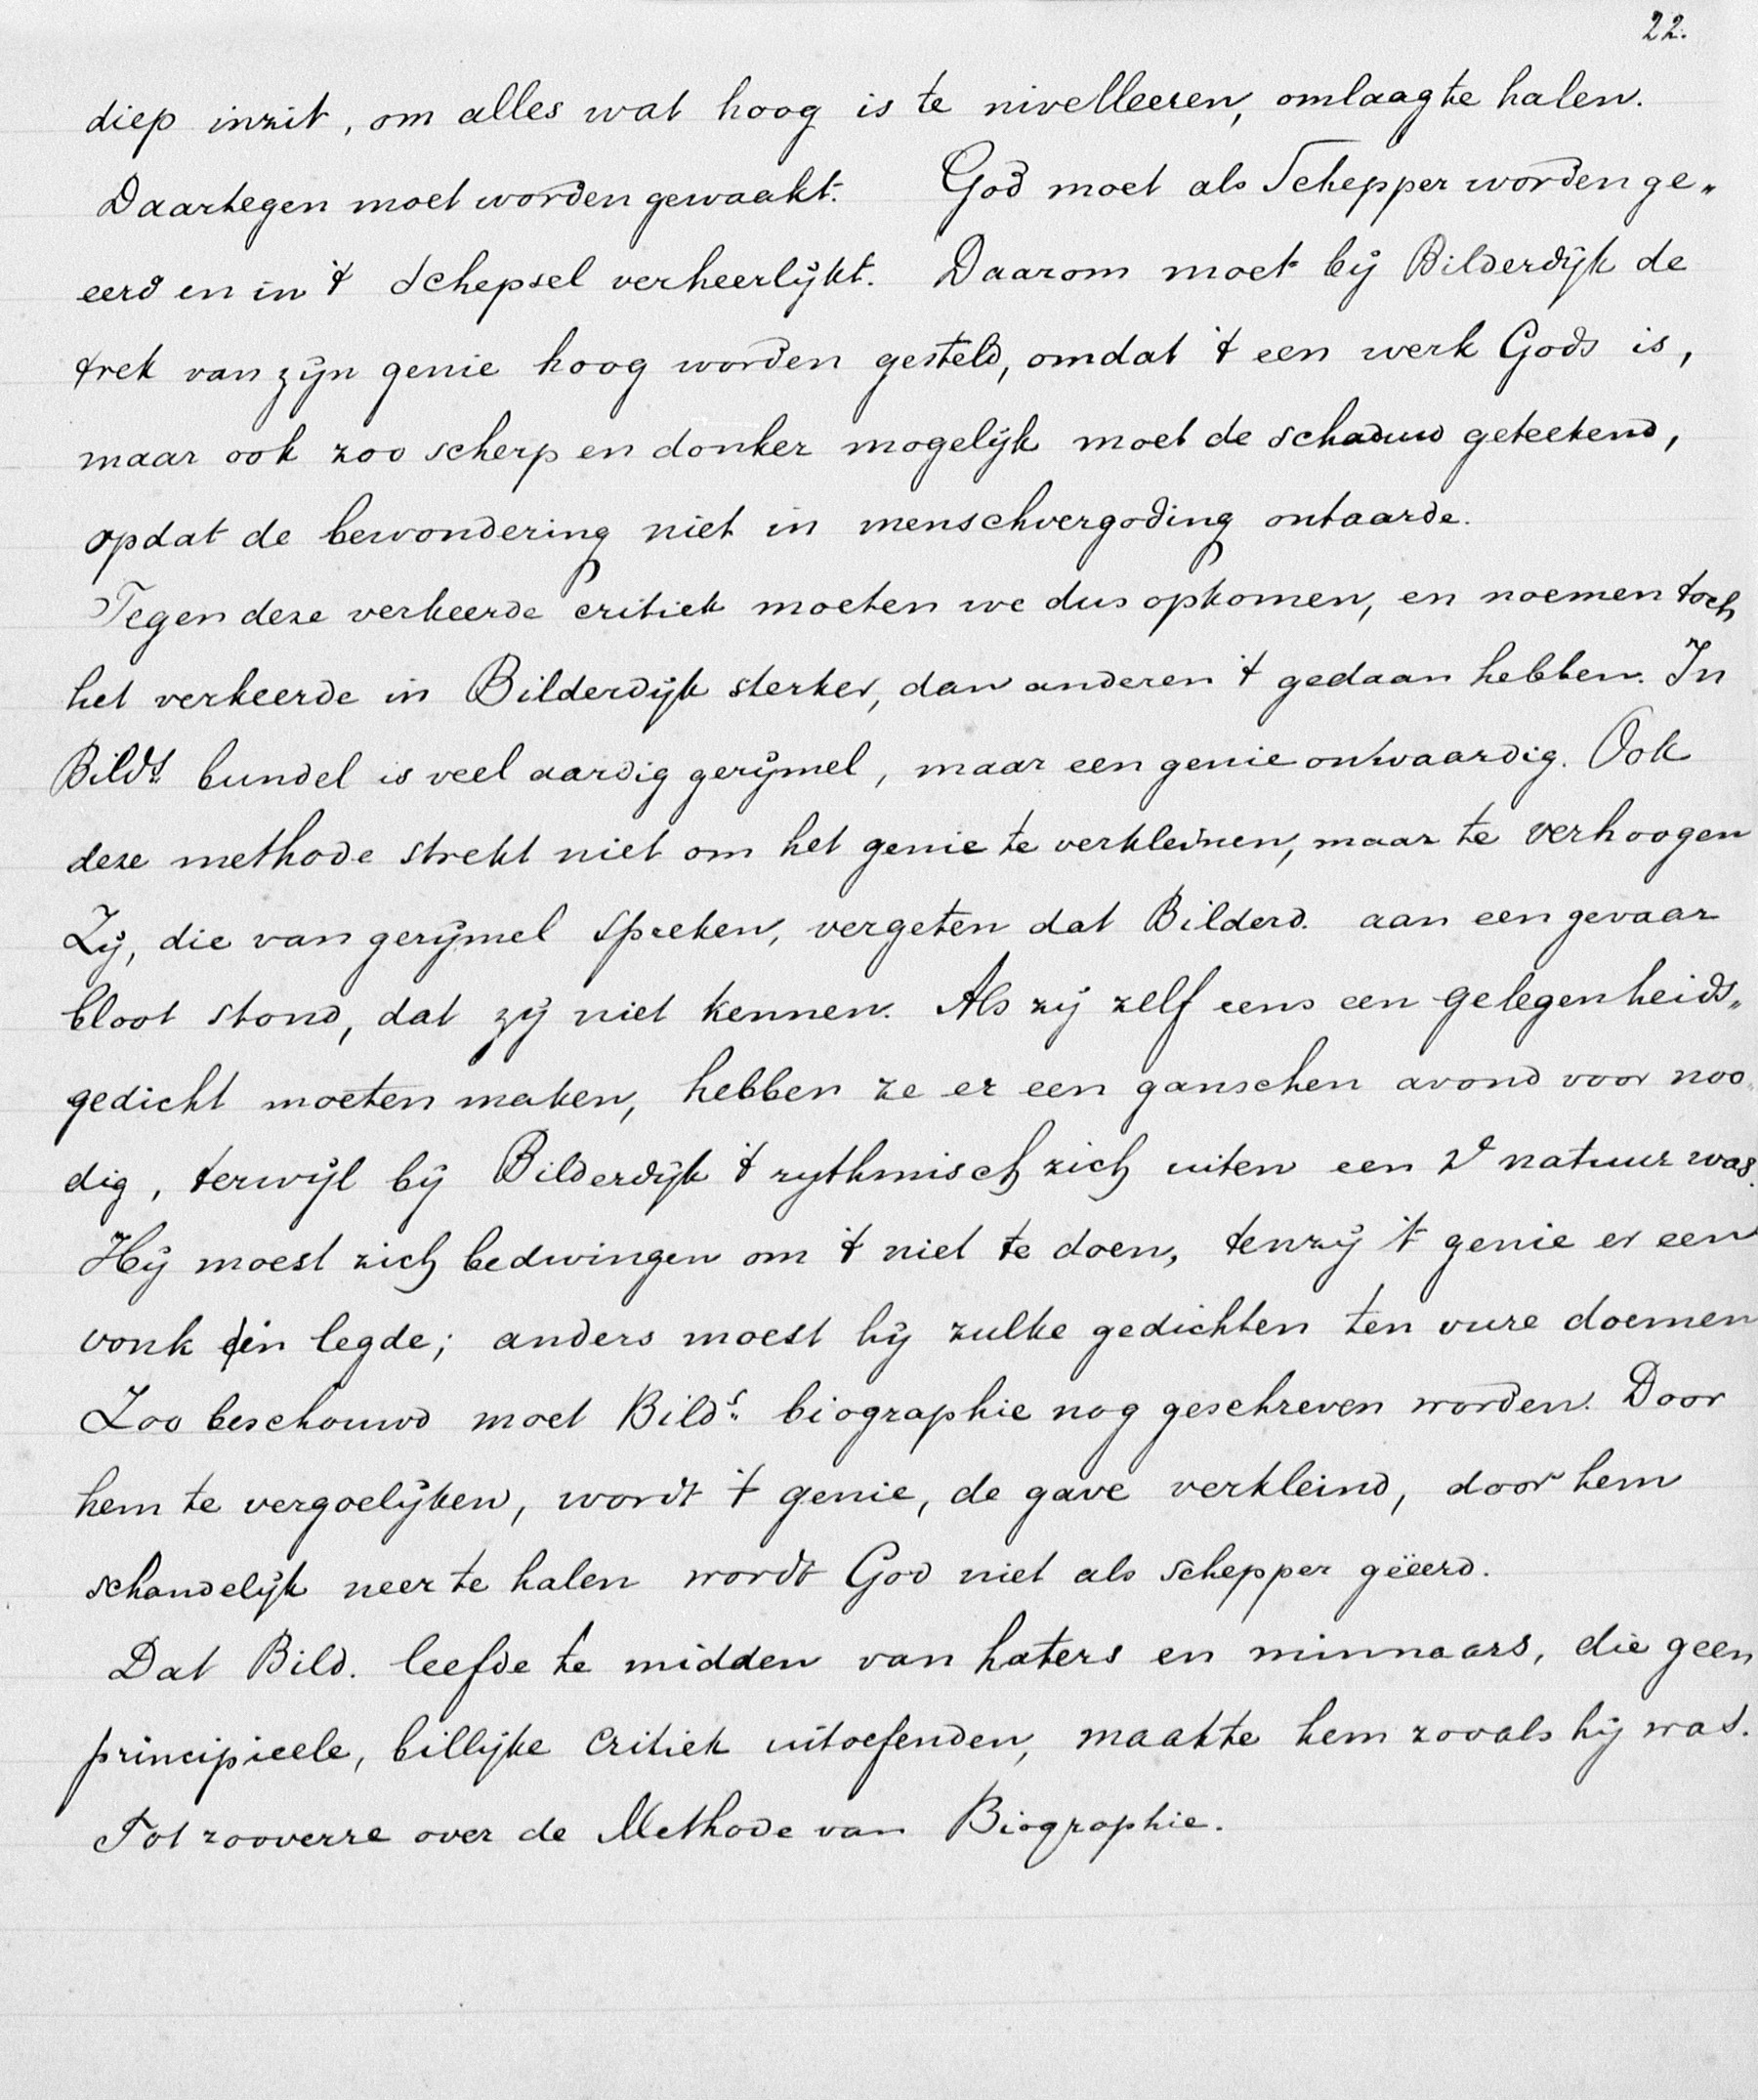 22.
diep inzit, om alles wat hoog is te nivelleeren, omlaag te halen.
Daartegen moet worden gewaakt. God moet als Schepper worden ge„
eerd en in 't Schepsel verheerlijkt. Daarom moet bij Bilderdijk de
trek van zijn genie hoog worden gesteld, omdat 't een werk Gods is,
maar ook zoo scherp en donker mogelijk moet de schaduw geteekend,
opdat de bewondering niet in menschvergoding ontaarde.
Tegen deze verkeerde critiek moeten we dus opkomen, en noemen toch
het verkeerde in Bilderdijk sterker, dan anderen 't gedaan hebben. In
Bild.s bundel is veel aardig gerijmel, maar een genie onwaardig. Ook
deze methode strekt niet om het genie te verkleinen, maar te verhoogen
Zij, die van gerijmel spreken, vergeten dat Bilderd. aan een gevaar
bloot stond, dat zij niet kennen. Als zij zelf eens een gelegenheids„
gedicht moeten maken, hebben ze er een ganschen avond voor noo„
dig, terwijl bij Bilderdijk 't rythmisch zich uiten een 2e natuur was.
Hij moest zich bedwingen om 't niet te doen, tenzij 't genie er een
vonk in legde; anders moest hij zulke gedichten ten vure doemen
Zoo beschouwd moet Bild.s biographie nog geschreven worden. Door
hem te vergoelijken, wordt 't genie, de gave verkleind, door hem
schandelijk neer te halen wordt God niet als schepper geëerd.
Dat Bild. leefde te midden van haters en minnaars, die geen
principieele, billijke critiek uitoefenden, maakte hem zooals hij was.
Tot zooverre over de Methode van Biographie.